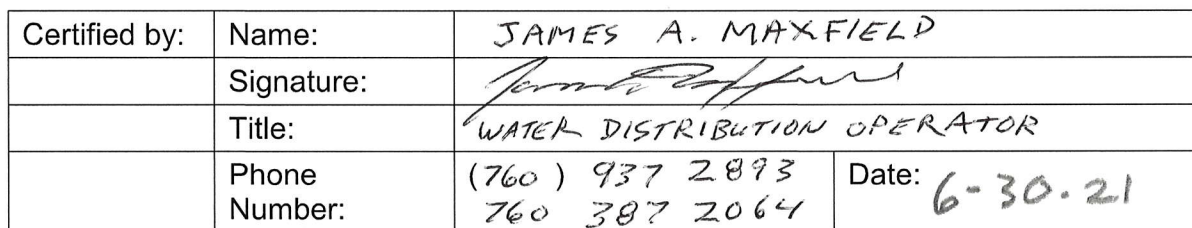 Certified by: Name: JAMES A. MAXFIELD
Signature:
Title: WATER DISTRIBUTION OPERATOR
Phone Number: (760) 937 2893
760 387 2064
Date: 6-30-21